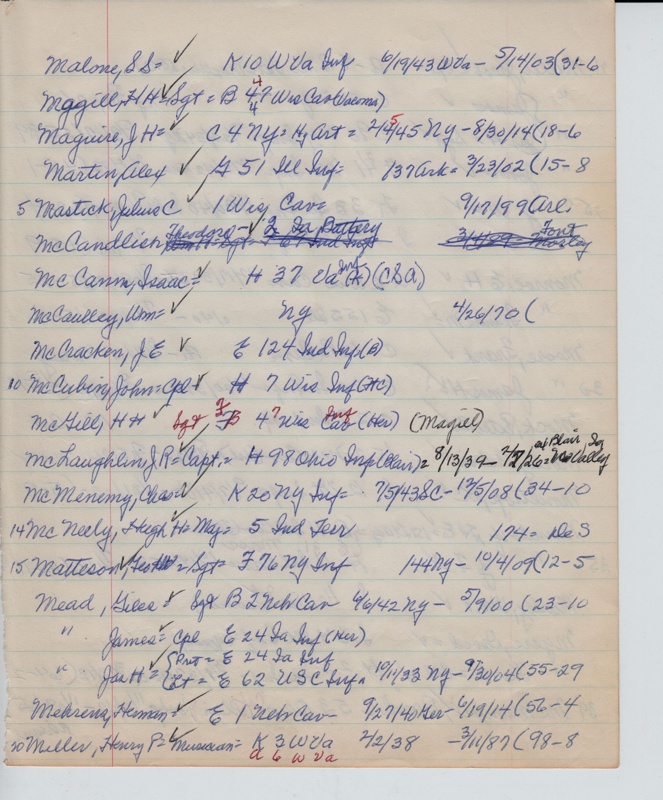 Malone, S S = ✓ K 10 W Va Inf 6/19/43 W Va - 5/14/03 (31-6
Mggill, H H = Sgt = B 47 Wis Cav (Wacoma)
Maguire, J H = ✓ C 4 Ny = Hy Art = 2/45 Ny - 8/30/14 (18-6
Martin, Alex ✓ G 51 Ill Inf = 137 Ark = 3/23/02 (15-8
5 Mastick, Julius C ✓ 1 Wis Cav = 9/17/99 Arl.
McCandlich Theodore - 2 Ia Battery Font Mosley
McCann, Isaac = ✓ H 37 Va Inf (H) (CSA)
McCaulley, Wm = ✓ Ny 4/26/70 (
McCracken, J. E ✓ E 124 Ind Inf (B)
10 McCubin, John = Cpl ✓ H 7 Wis Inf (HC)
McGill, H H ✓ Sgt F B 47 Wis Inf Cav (Her) (Magill)
McLaughlin, J R = Capt. = H 98 Ohio Inf (Blair) = 8/13/39 - 2/ /26 = at Blair, Valley
McMenemy, Chas ✓ K 20 Ny Inf = 7/5/43 SC - 12/5/08 (34-10
14 McNeely, Hugh H = Maj = 5 Ind Teer 174 = Des
15 Matteson, = Sgt = F 76 Ny Inf 144 Ny - 10/4/09 (12-5
Mead, Giles = Sgt B 2 Neb Cav 4/6/42 Ny - 5/9/00 (23-10
" James = Cpl E 24 Ia Inf (Her)
" Jas H = { Pvt = E 24 Ia Inf
Lt = E 62 USC Inf = 10/11/33 Ny - 9/30/04 (55-29
Mehrens, Heman = ✓ E 1 Neb Cav - 9/27/40 Ger - 6/19/14 (56-4
20 Miller, Henry P = Musician = K 3 W Va 2/2/38 - 3/11/87 (98-8
d 6 W Va